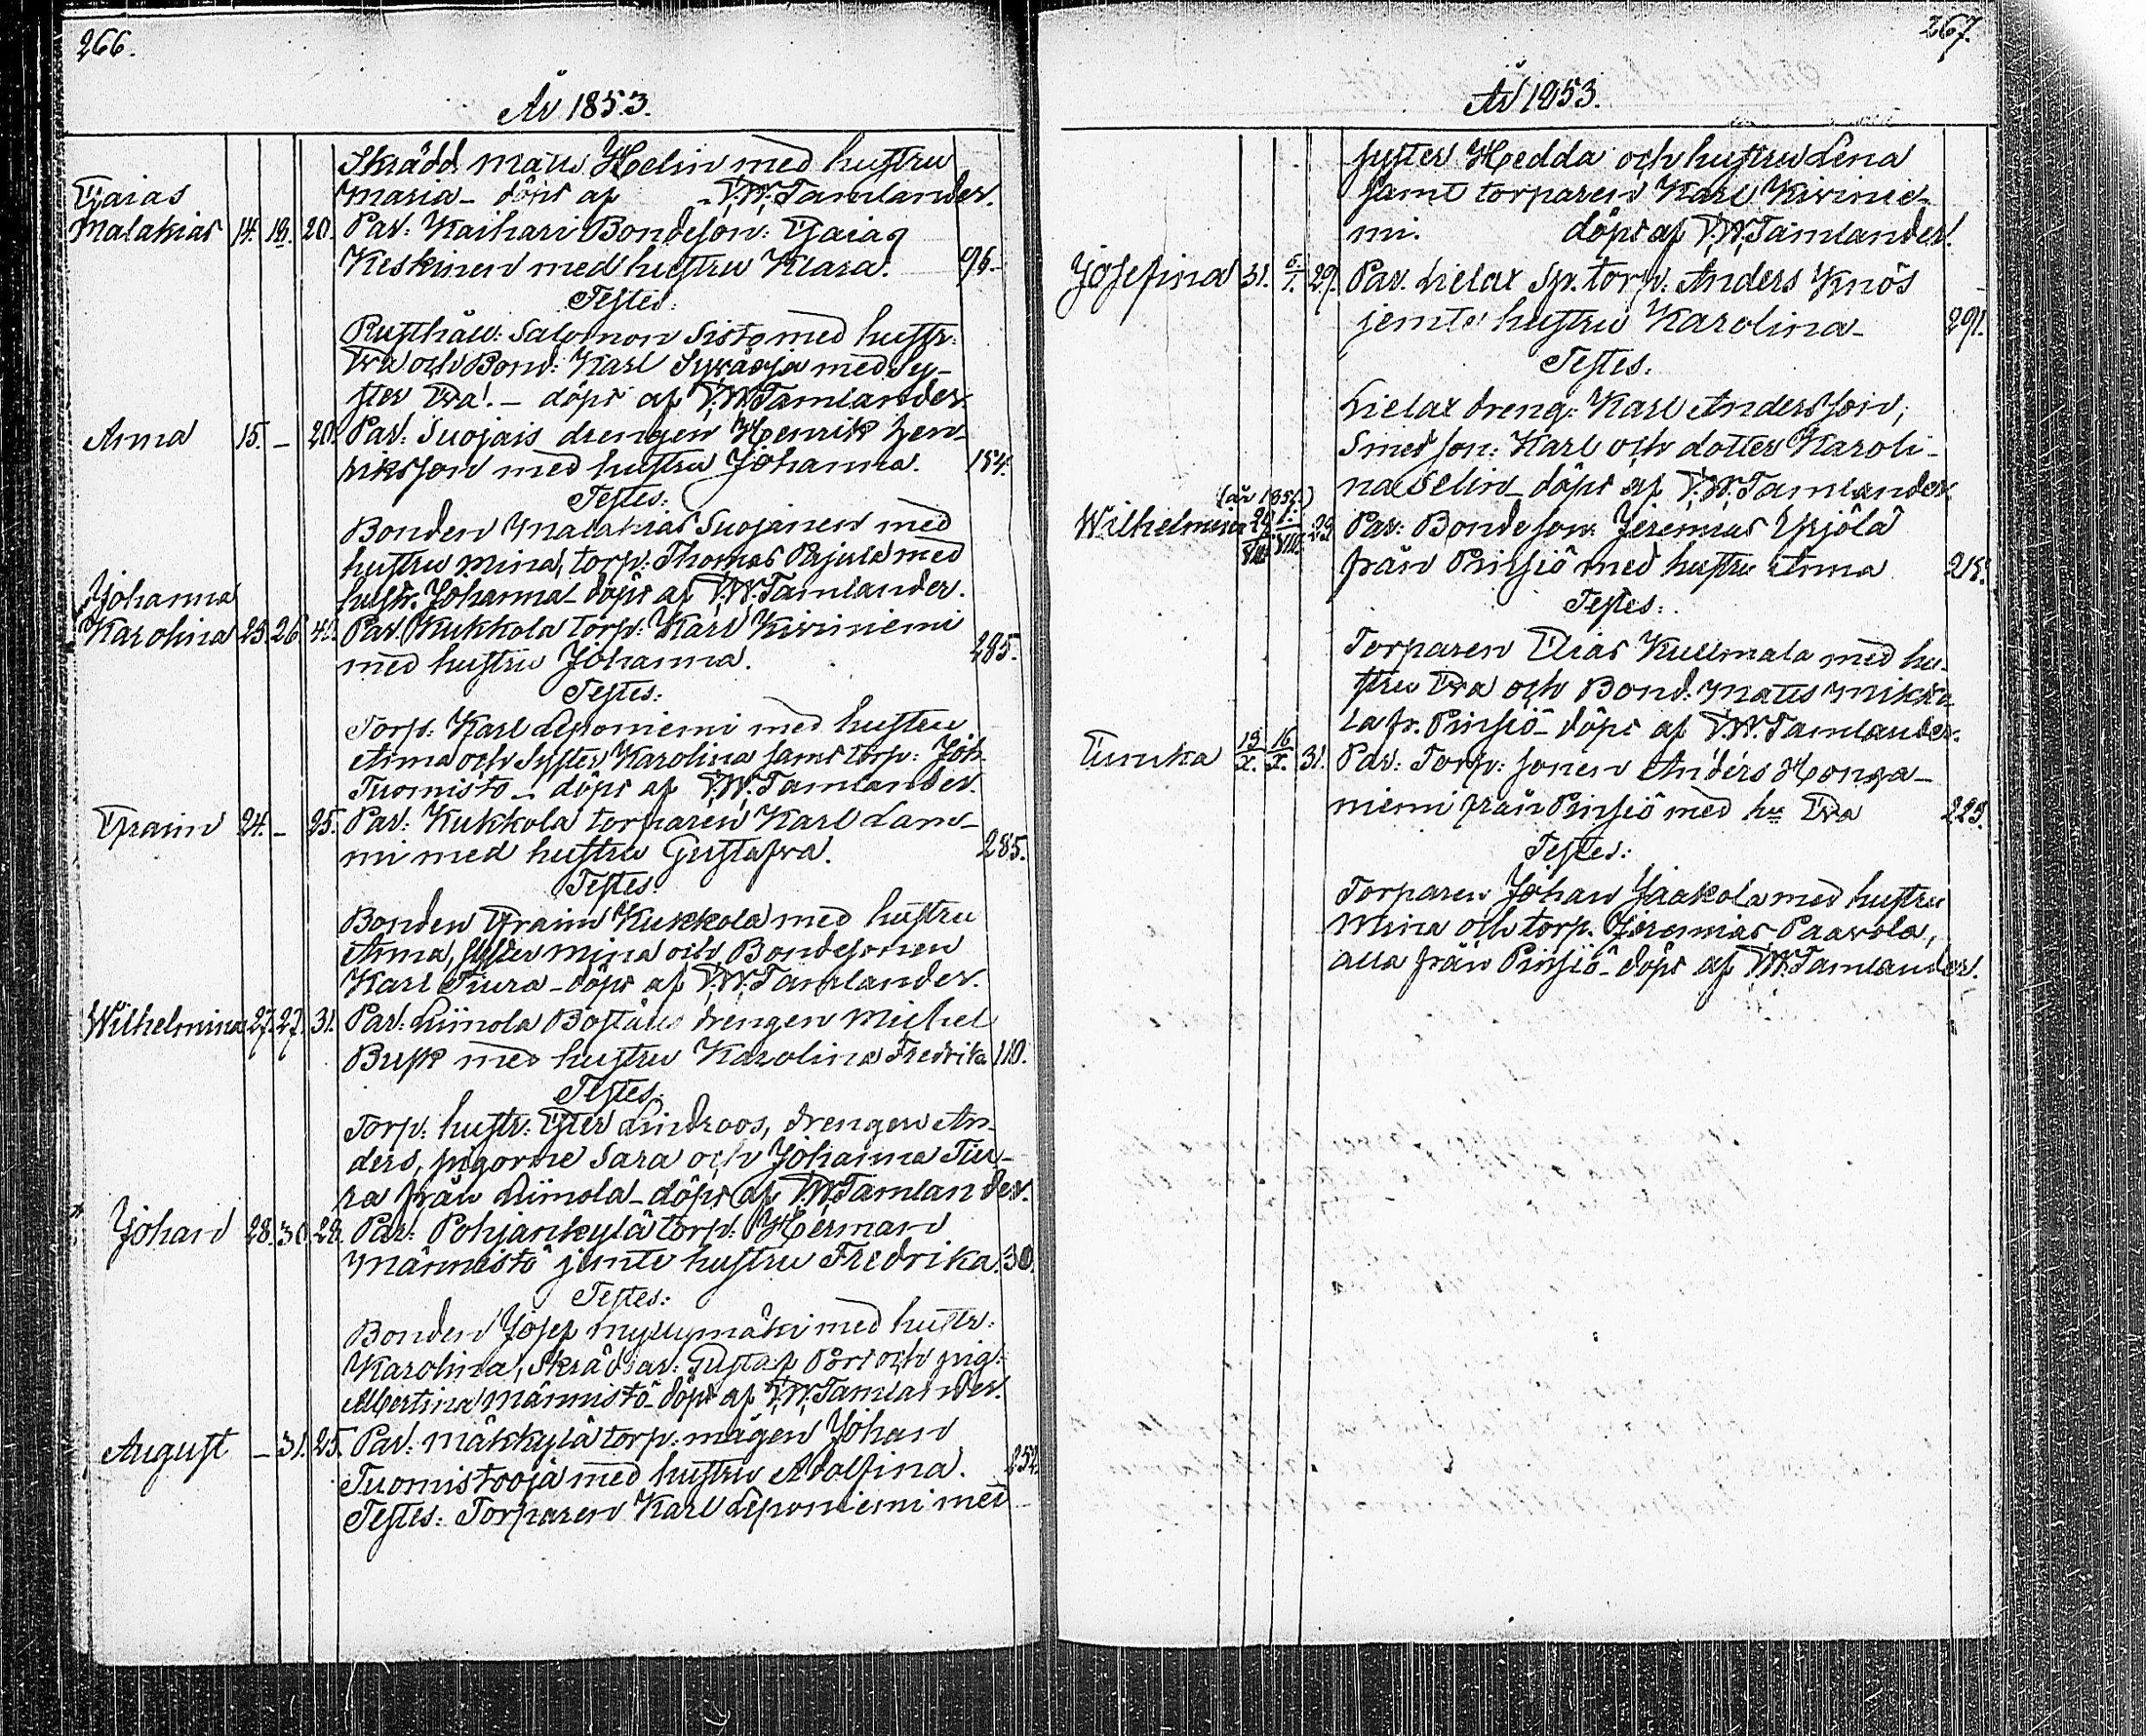 266.
År 1853.
Skrädd. Matts Helin med hustru
Maria - döpt af F.W. Tamlander.
Esaias
Malakias 14. 19. 20. Par: Kaihari Bondeson: Esaias
Keskinen med hustru Klara. 96.
Testes:
Rusthåll: Salomon Sisto med hustr:
Eva och Bond: Karl Syväoja med Sy-
ster Eva. - döpt af F.W. Tamlander.
Anna 15. - 20. Par: Suojais drengen Henrik Hen-
riksson med hustru Johanna. 184.
Testes:
Bonden Malakias Suojanen med
hustru Mina, torp: Thomas Pajula med
hustr. Johanna - döpt af F.W. Tamlander.
Johanna
Karolina 25. 26. 41. Par. Kukkola torp: Karl Kiviniemi
med hustru Johanna. 285.
Testes:
Torp: Karl Leponiemi med hustru
Anna och Syster Karolina samt torp: Joh.
Tuomisto - döpt af F.W. Tamlander.
Efraim 24. - 25. Par: Kukkola torparen Karl Lam-
mi med hustru Gustafva. 285.
Testes:
Bonden Efraim Kukkola med hustru
Anna, Syster Mina och Bondesonen
Karl Tiura - döpt af F.W. Tamlander.
Wilhelmina 27. 27. 31. Par: Liinola Boställs drengen Michel
Busk med hustru Karolina Fredrika 110.
Testes:
Torp: hustr: Ester Lindroos, drengen An-
ders, pigorne Sara och Johanna Tiu-
ra från Liinola - döpt af F.W. Tamlander.
Johan 28. 30. 28. Par: Pohjankylä torp: Herman
Männistö jemte hustru Fredrika. 30.
Testes:
Bonden Josef Myllymäki med hustr:
Karolina, Skräddar: Gustaf Pori och pig:
Albertina Männistö - döpt af F.W. Tamlander.
August - 31. 25. Par: Mäkkylä torp: mågen Johan
Tuomistooja med hustru Adolfina. 252.
Testes: Torparen Karl Leponiemi med
267.
År 1853.
syster Hedda och hustru Lena
samt torparen Karl Kivinie-
mi. döpt af F.W. Tamlander.
Josefina 31. 6/1. 29. Par. Lielax Sp. torp. Anders Knös
jemte hustru Karolina - 291.
Testes.
Lielax dreng: Karl Andersson,
Smedson: Karl och dotter Karoli-
na Selin - döpt af F.W. Tamlander
Wilhelmina 29/VIII 1/VIII 29 Par: Bondeson: Jeremias Yrjölä
från Pinsiö med hustru Anna 218.
Testes:
Torparen Elias Kullmala med hu-
stru Eva och Bond: Matts Mikko
la fr. Pinsiö - döpt af F.W. Tamlander.
Eunika 13/X. 16/X. 31. Par: Torp: sonen Anders Honga-
niemi från Pinsiö med hu Eva 223.
Testes:
Torparen Johan Jaakola med hustru
Mina och torp. Jeremias Paavola,
alla från Pinsiö - döpt af F.W. Tamlander.